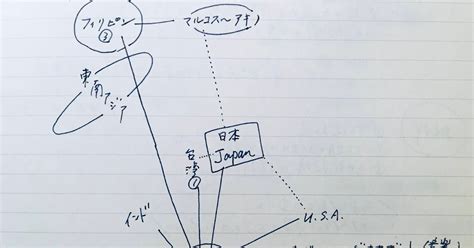 フィリピン
③
マルコス〜アキノ
東南アジア
日本
Japan
台湾
①
インド
U.S.A.